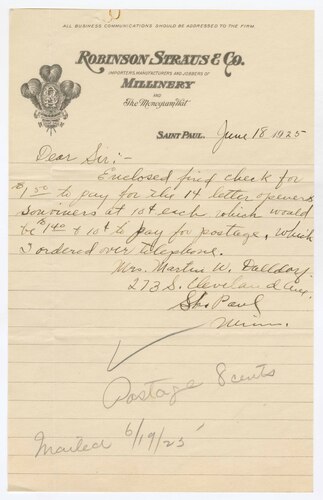 ALL BUSINESS COMMUNICATIONS SHOULD BE ADDRESSED TO THE FIRM.
ROBINSON STRAUS & CO.
IMPORTERS, MANUFACTURERS AND JOBBERS OF
MILLINERY
AND
The Monogram Hat
SAINT PAUL, June 18 1925
Dear Sir;-
Enclosed find check for
$1.50 to pay for the 14 letter openers
souviners at 10¢ each which would
be $1.40 & 10¢ to pay for postage, which
I ordered over telephone.
Mrs. Martin W. Dalldorf
273 S. Cleveland Ave.
St. Paul
Minn.
Postage 8 cents
Mailed 6/19/25